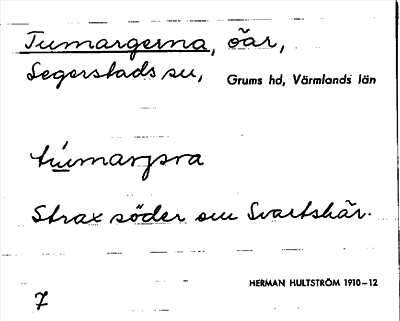 Tumargerna, öar,
Segerstads sn, Grums hd, Värmlands län
tùmarjəra
Strax söder om Svartskär.
HERMAN HULTSTRÖM 1910–12
7